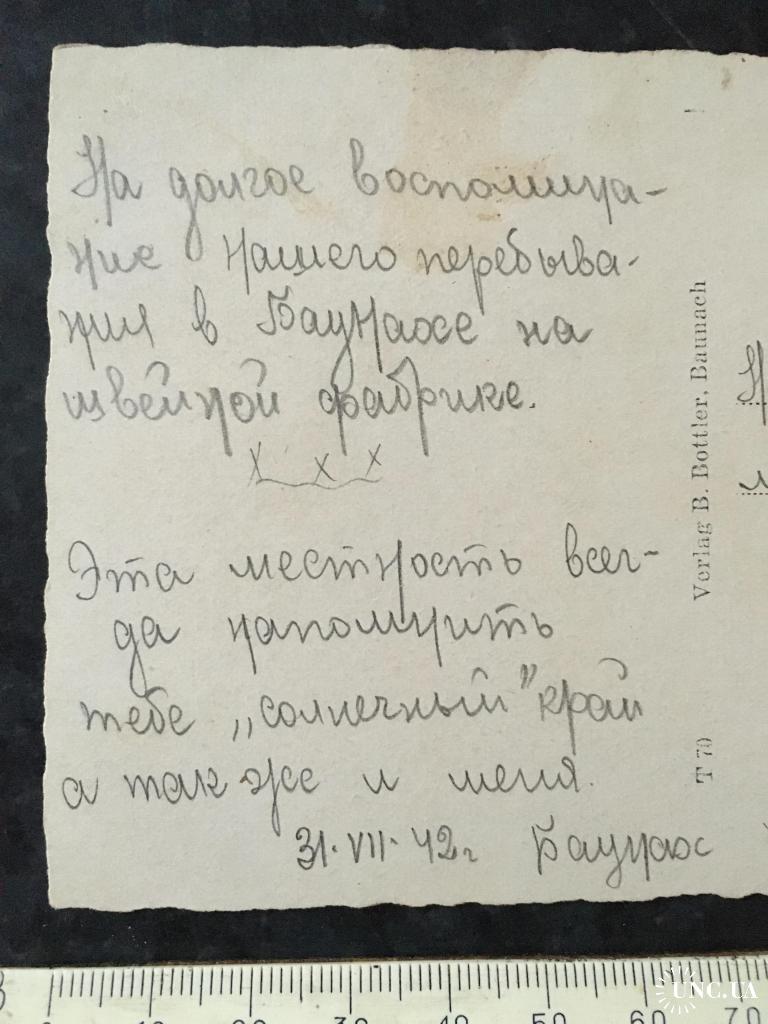 На долгое воспомина-
ние нашего перебыва-
ния в Баунахе на
швейной фабрике.
х х х
Эта местность всег-
да напомнить
тебе „солнечный" край
а так же и меня.
31. VII. 42 г Баунах
Verlag B. Bottler, Baunach
T 70
10 20 30 40 50 60 70
UNC.UA